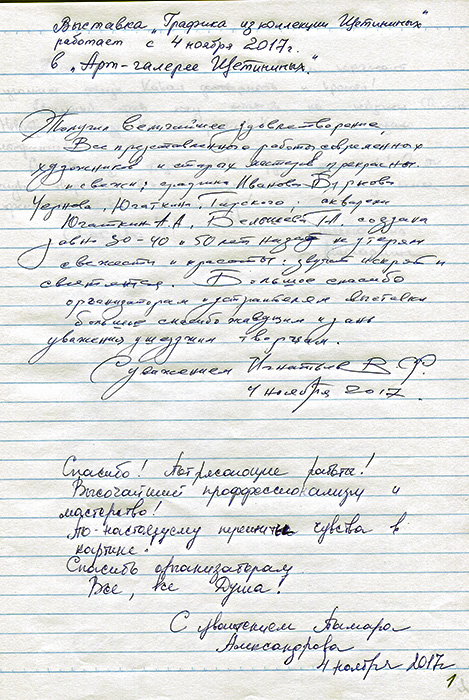 Выставка „Графика из коллекции Щетининых"
работает с 4 ноября 2017г.
в „Арт-галерее Щетининых".
Получил величайшее удовлетворение,
Все представленного работы современных
художников и старых мастеров прекрасны
и свежи; графика Иванова,
Чернова, Югаткина, акварели
Югаткин А.А., создана
давно 30-40 и 50 лет назад не утерян
свежести и красоты: звучат искрят и
светятся. Большое спасибо
организаторам и устроителям выставки
большое спасибо живущим и дань
уважения ушедшим творцам.
С уважением Игнатьев В.Ф.
4 ноября 2017.
Спасибо! Потрясающие работы!
Высочайший проффессионализм и
мастерство!
По-настоящему чувства в
картине.
Спасибо организаторам
Все, все Душа!
С уважением Тамара
Александрова
4 ноября 2017г
1